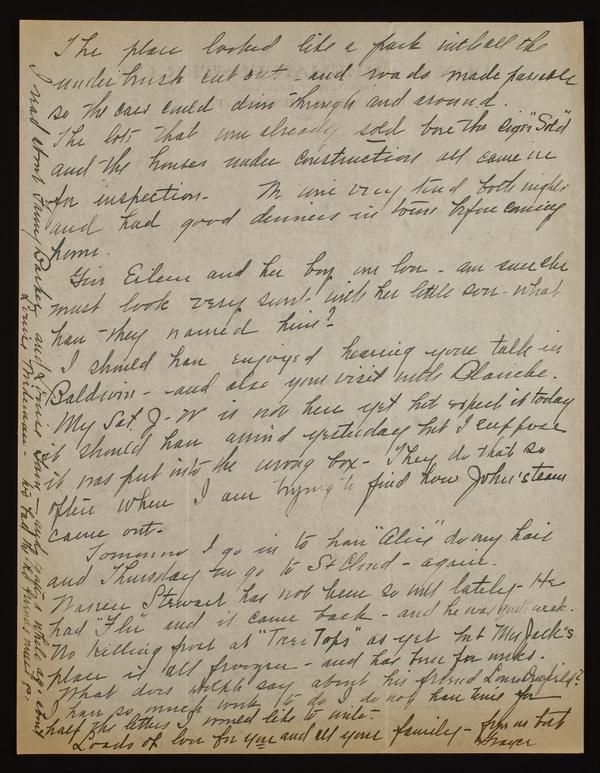 The place looked like a park with all the
underbrush cut out - and roads made passable
so the cars could drive through and around.
The lots that were already sold bore the sign "Sold"
and the houses under construction all came in
for inspection. We were very tired both nights
and had good dinners in town before coming
home.
Give Eileen and her boy our love - am sure she
must look very sweet with her little son - what
have they named him?
I should have enjoyed hearing your talk in
Baldwin - and also your visit with Blanche.
My Sat. J-W is not here yet but expect it today
it should have arrived yesterday but I suppose
it was put into the wrong box - They do that so
often when I am trying to find how John's team
came out -
Tomorrow I go in to have "Alice" do my hair
and Thursday we go to St Cloud - again.
Warren Stewart has not been so well lately - He
had "Flu" and it came back - and he was quite weak.
No killing frost at "Tree Tops" as yet but Mrs Jack's
place is all frozen - and has been for weeks.
What does say about his friend Louis
I have so much work to do I do not have time for
half the letters I would like to write -
Loads of love for you and all your family - from us both
Grace
I read about Fanny and Louis - quite a while ago about
Louis - he had the